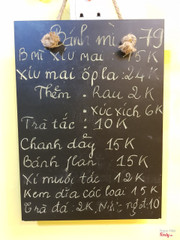 Bánh mì 79
B mì xíu mại : 15K
Xíu mại ốp la : 24K
Thêm - Rau 2K
- Xúc xích 6K
Trà tắc : 10K
Chanh dây 15K
Bánh flan 15K
Xí muối tắc 12K
Kem dừa các loại 15K
Trà đá 2K, Nước ngọt : 10